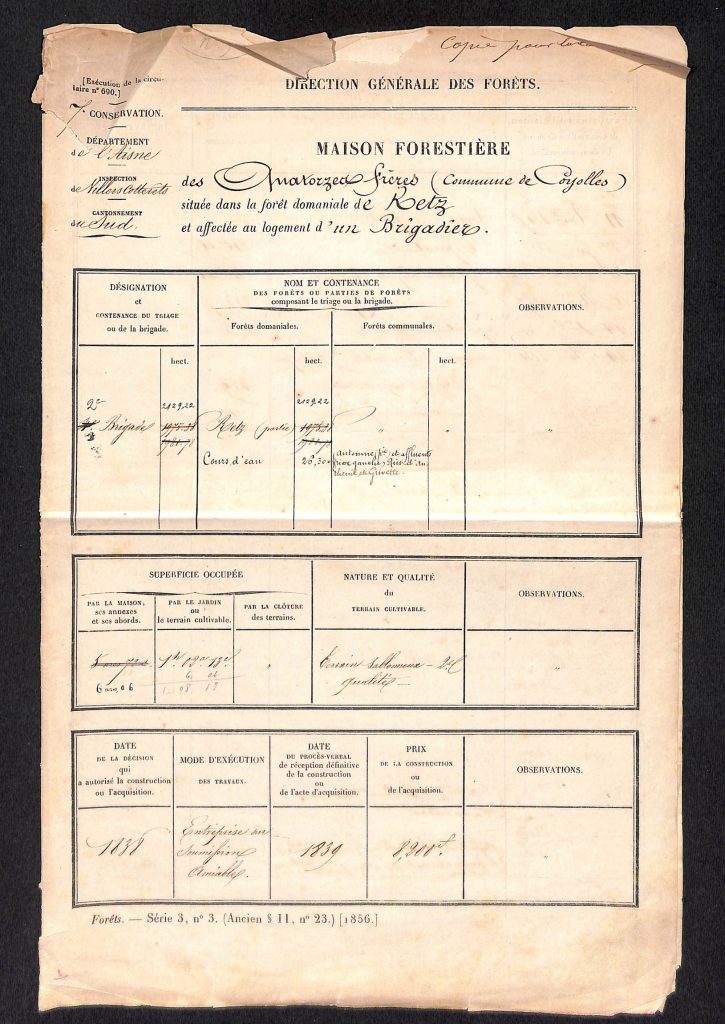 Copie pour
[Exécution de la circu-
laire n° 690.]
7e CONSERVATION.
DÉPARTEMENT
de l'Aisne
INSPECTION
de Villers Cotterets
CANTONNEMENT
du Sud.
DIRECTION GÉNÉRALE DES FORÊTS.
MAISON FORESTIÈRE
des Quatorze Frères (Commune de Coyolles)
située dans la forêt domaniale de Retz
et affectée au logement d'un Brigadier.
DÉSIGNATION
et
CONTENANCE DU TRIAGE
ou de la brigade.
NOM ET CONTENANCE
DES FORÊTS OU PARTIES DE FORÊTS
composant le triage ou la brigade.
Forêts domaniales.
Forêts communales.
OBSERVATIONS.
hect. hect. hect.
2e 2129,22 2129,22
Brigade Retz (partie) " " "
Cours d'eau 26,30
automne, et affluents
rive gauche,
et Grivette.
SUPERFICIE OCCUPÉE
PAR LA MAISON,
ses annexes
et ses abords.
PAR LE JARDIN
ou
le terrain cultivable.
PAR LA CLÔTURE
des terrains.
NATURE ET QUALITÉ
du
TERRAIN CULTIVABLE.
OBSERVATIONS.
5 are 72 c 1h 03a 13c " Terrain sablonneux – 2e "
qualité –
6 are, 06
6. 06
1. 08 19
DATE
DE LA DÉCISION
qui
a autorisé la construction
ou l'acquisition.
MODE D'EXÉCUTION
DES TRAVAUX.
DATE
DU PROCÈS-VERBAL
de réception définitive
de la construction
ou
de l'acte d'acquisition.
PRIX
DE LA CONSTRUCTION
ou
de l'acquisition.
OBSERVATIONS.
1838 Entreprise sur 1839 8,200f. "
soumission
amiable.
Forêts. — Série 3, n° 3. (Ancien § 11, n° 23.) [1856.]